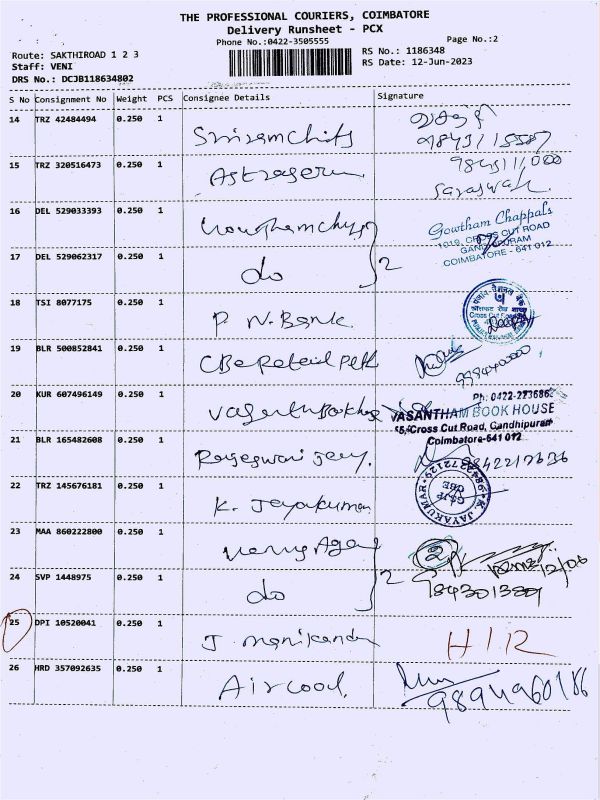 THE PROFESSIONAL COURIERS, COIMBATORE
Delivery Runsheet - PCX
Phone No.:0422-3505555 Page No.:2
Route: SAKTHIROAD 1 2 3 RS No.: 1186348
Staff: VENI RS Date: 12-Jun-2023
DRS No.: DCJB118634802
S No Consignment No Weight PCS Consignee Details Signature
14 TRZ 42484494 0.250 1 Sriram Chits
15 TRZ 320516473 0.250 1
Saraswati
16 DEL 529033393 0.250 1 Gowtham Chappals
1019, CROSS CUT ROAD
GANDHIPURAM
COIMBATORE - 641 012
17 DEL 529062317 0.250 1 do 2
18 TSI 8077175 0.250 1 P N. Bank
19 BLR 500852841 0.250 1
20 KUR 607496149 0.250 1 Ph: 0422-2236862
VASANTHAM BOOK HOUSE
55/Cross Cut Road, Gandhipuram
Coimbatore-641 012
21 BLR 165482608 0.250 1 9842217636
22 TRZ 145676181 0.250 1 K. Jayakumar K. JAYAKUMAR
CBE
23 MAA 860222800 0.250 1 12/06
24 SVP 1448975 0.250 1 do 2
25 DPI 10520041 0.250 1 J. Manikandan H I R
26 HRD 357092635 0.250 1 Aircool. 9894960186